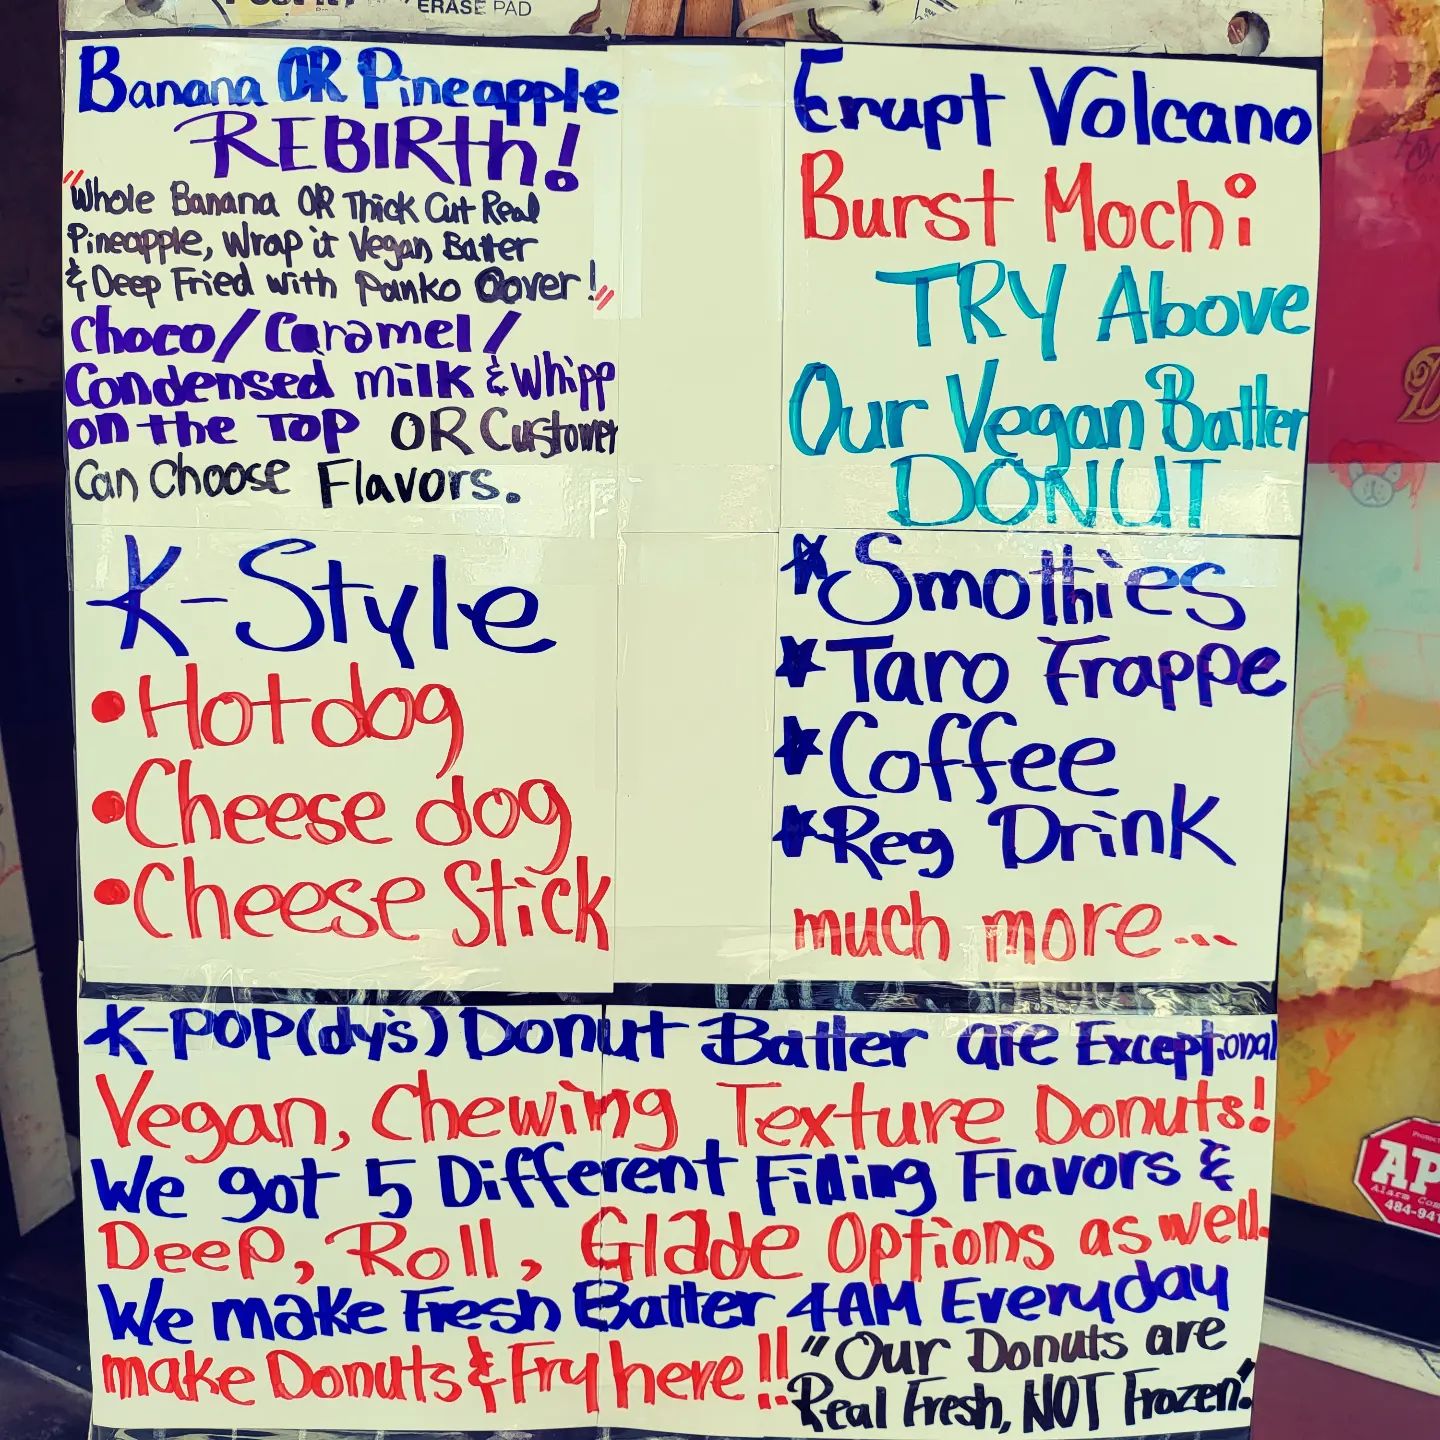 ERASE PAD
Banana OR Pineapple
REBIRTH!
"Whole Banana OR Thick Cut Real
Pineapple, Wrap it Vegan Batter
& Deep Fried with Panko Cover!"
Choco/Caramel/
Condensed milk & Whipp
on the TOP OR Customer
Can Choose Flavors.
Erupt Volcano
Burst Mochi
TRY Above
Our Vegan Batter
DONUT
K-Style
•Hotdog
•Cheese dog
•Cheese Stick
★Smothies
★Taro Frappe
★Coffee
★Reg Drink
much more...
K-POP(dy's) Donut Batter are Exceptional
Vegan, Chewing Texture Donuts!
We got 5 Different Filling Flavors &
Deep, Roll, Glade Options as well.
We make Fresh Batter 4AM Everyday
make Donuts & Fry here!!
"Our Donuts are
Real Fresh, NOT Frozen!"
AP
Alarm Com
484-941